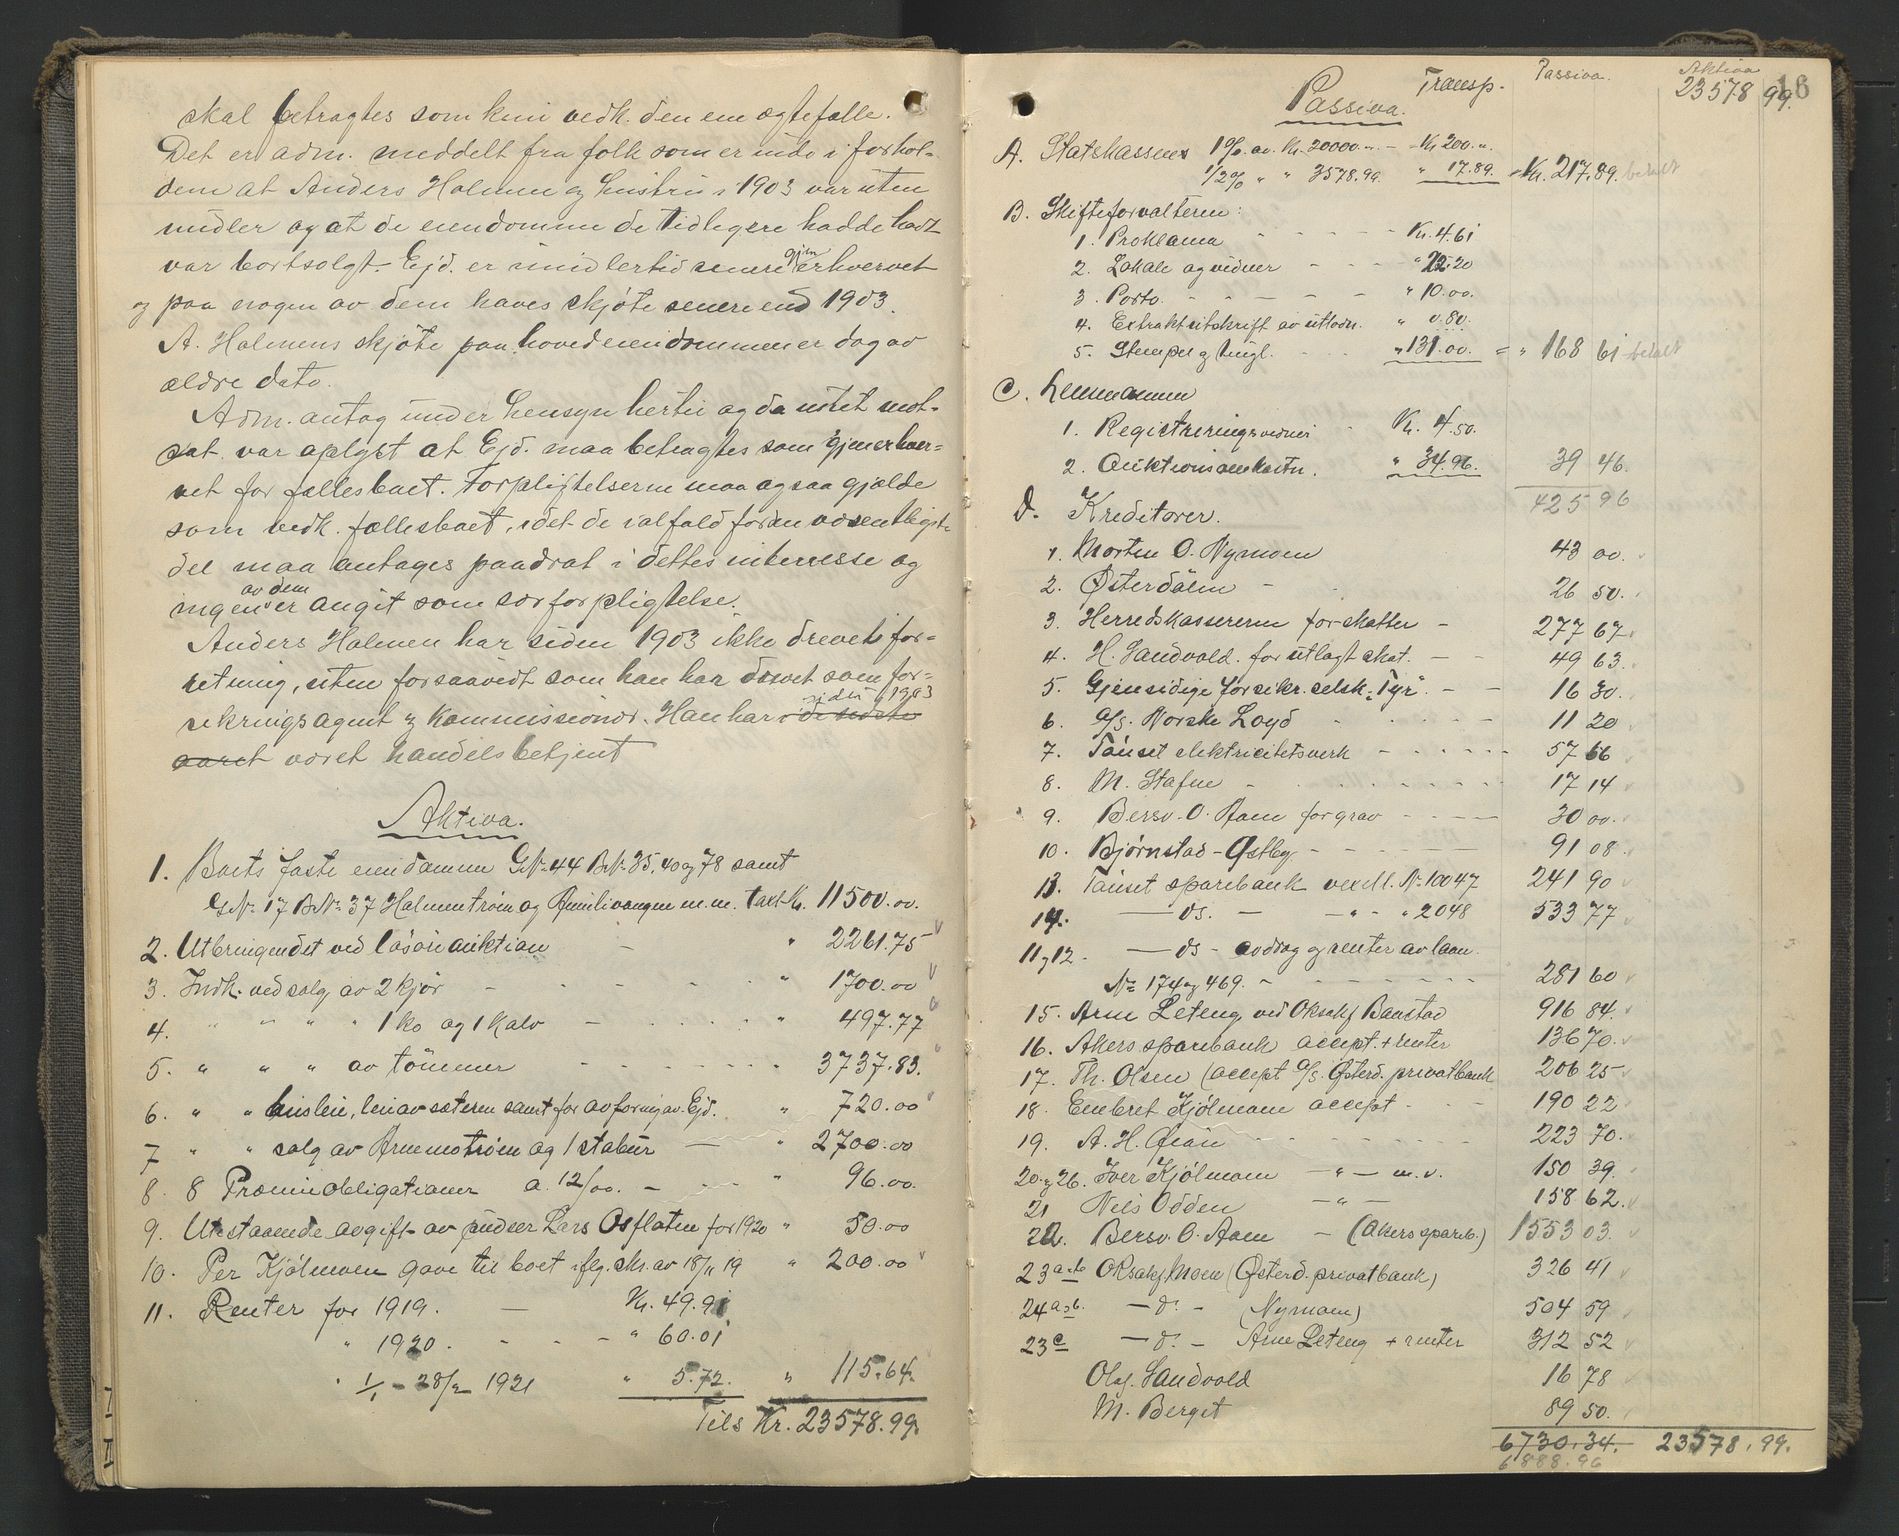 skal betragtes som kun vedk. den ene ægtefælle.
Det er adm. meddelt fra folk som er inde i forhol-
dene at Anders Holmen og hustru i 1903 var uten
midler og at de eiendomme de tidligere hadde hadt
var bortsolgt. Ejd. er imidlertid senere gjenerhvervet
og paa nogen av dem haves skjøte senere end 1903.
A. Holmens skjøte paa hovedeiendommen er dog av
ældre dato.
Adm. antog under hensyn hertil og da intet mot-
sat var oplyst at Ejd. maa betragtes som gjenerhver-
vet for fællesboet. Forpligtelserne maa ogsaa gjælde
som vedk. fællesboet, idet de ialfald for en væsentligste
del maa antages paadrat i dettes interesse og
ingen av dem er angit som særforpligtelse.
Anders Holmen har siden 1903 ikke drevet for-
retning, uten forsaavidt som han har drevet som for-
sikringsagent og Kommissionær. Han har i de sidste siden 1903
aaret været handelsbetjent
Aktiva.
1. Boets faste eiendomme GNo 44 BNo 35, 40 og 78 samt
GNo 17 BNo 37 Holmentrøen og Æmilivangen m.m. taxt Kr. 11500.00.
2. Utbringendet ved løsøreauktion - " 2261.75
3. Indk. ved salg av 2 kjør - " 1700.00
4. " " " " 1 ko og 1 kalv - " 497.77
5. " " " av tømmer " 3737.83.
6. " " husleie, leie av sæteren samt for avforing av Ejd. " 720.00
7 " " salg av Ammotrøen og 1 stabur - " 2700.00
8. 8 Præmieobligationer a. 12/00. - " 96.00.
9. Utestaaende avgift av pudser Lars Osflaten for 1920 " 50.00
10. Per Kjølmoen gave til boet iflg. skr. av 18/11 19 " 200.00
11. Renter for 1919. - Kr. 49.91
" 1920. - " 60.01
" 1/1 - 28/2 1921 " 5.72. " 115.64.
Tils Kr. 23578.99.
I
II
18
Passiva. Transp. Passiva. Aktiva 23578 99.
A. Statskassen 1% av Kr. 20000.00 - Kr 200.00
1/2% " " 3578.99. " 17.89. = Kr. 217.89. betalt
B. Skifteforvalteren:
1. Proklama - Kr. 4.61
2. Lokale og vidner - " 22.20
3. Porto. - " 10.00.
4. Extraktutskrift av utlodn. " 0.80.
5. Stempel og tingl. " 131.00. = " 168 61 betalt
C. Lensmannen
1. Registreringsvidner - Kr. 4.50.
2. Auktionsomkostn. " 34.96. 39 46.
425 96
D. Kreditorer.
1. Morten O. Nymoen 43 00.
2. Østerdølen - 26 50.
3. Herredskassereren for skatter - 277 67.
4. H. Sandvold. for utlagt skat. - 49 63.
5. Gjensidige forsikr. selsk. "Tyr". - 16 30.
6. A/s. Norske Loyd 11 20
7. Tønset elektricitetsverk - 57 66
8. M. Stafne - 17 14
9. Bersv. O. Aam for grav - 30 00.
10. Bjørnstad - Østby. - 91 08.
13. Tønset sparebank vexell. No 10047 241 90
14. - ds. - - " - " 2048 533 77
11 og 12. - ds - avdrag og renter av laan.
No 174 og 469. - 281 60
15. Arne Leteng ved Oksakf Baastad 916 84.
16. Akers sparebank accept. + renter 136 70.
17. Th. Olsen (accept A/s. Østerd. privatbank 206 25
18. Embret Kjølmoen accept - 190 22
19. A. H. Øian - 223 70.
20 og 26. Iver Kjølmoen - " - m.v. 150 39.
21 Nils Odden - " - 158 62.
22. Bersv. O. Aam - (Akers spareb.) 1553 03.
23 a-b OKsakf Moen (Østerd. privatbank) 326 41
24 a og b. - d. - (Nymoen) 504 59
23 c - d. - Arne Leteng + renter 312 52
Olaf Sandvold 16 78
M. Berget 89 50.
6730.34. 23578.99.
6888.96